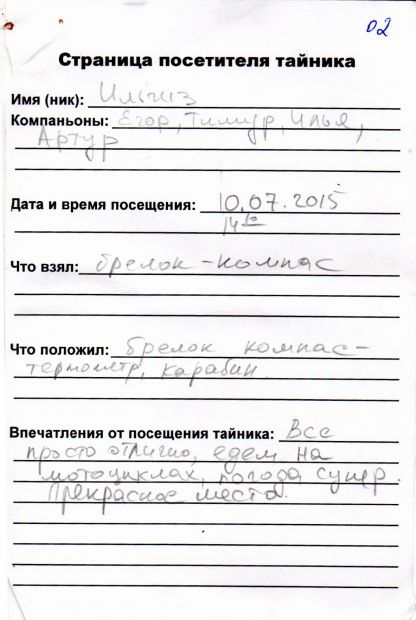 02
Страница посетителя тайника
Имя (ник):
Компаньоны: Егор, Тимур, Илья,
Артур
Дата и время посещения: 10.07.2015
14
Что взял: брелок-компас
Что положил: брелок компас-
термометр, карабин.
Впечатления от посещения тайника: Все
просто отлично, едем на
мотоциклах, погода супер.
Прекрасное место.